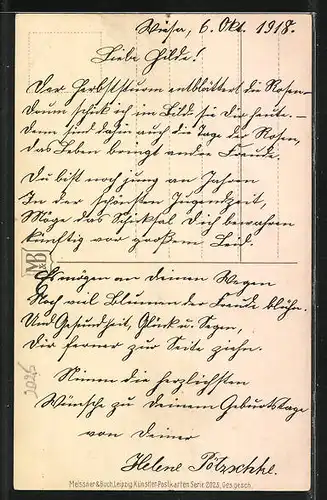 Wiesa, 6. Okt. 1918.
Liebe Hilde!
Der Herbststurm entblättert die Rosen –
Drum schick ich im Bilde sie Dir heute. –
Denn sind dahin auch die Tage der Rosen,
Das Leben bringt andre Freude.
Du bist noch jung an Jahren
In der schönsten Jugendzeit,
Möge das Schicksal Dich bewahren
Künftig vor großem Leid.
Es mögen an Deinen Wegen
Noch viel Blumen der Freude blühn.
Und Gesundheit, Glück u. Segen,
Dir ferner zur Seite ziehn.
Nimm die herzlichsten
Wünsche zu Deinem Geburtstage
von Deiner
Helene
M&B
2025
Meissner & Buch, Leipzig. Künstler-Postkarten Serie 2025, Ges. gesch.